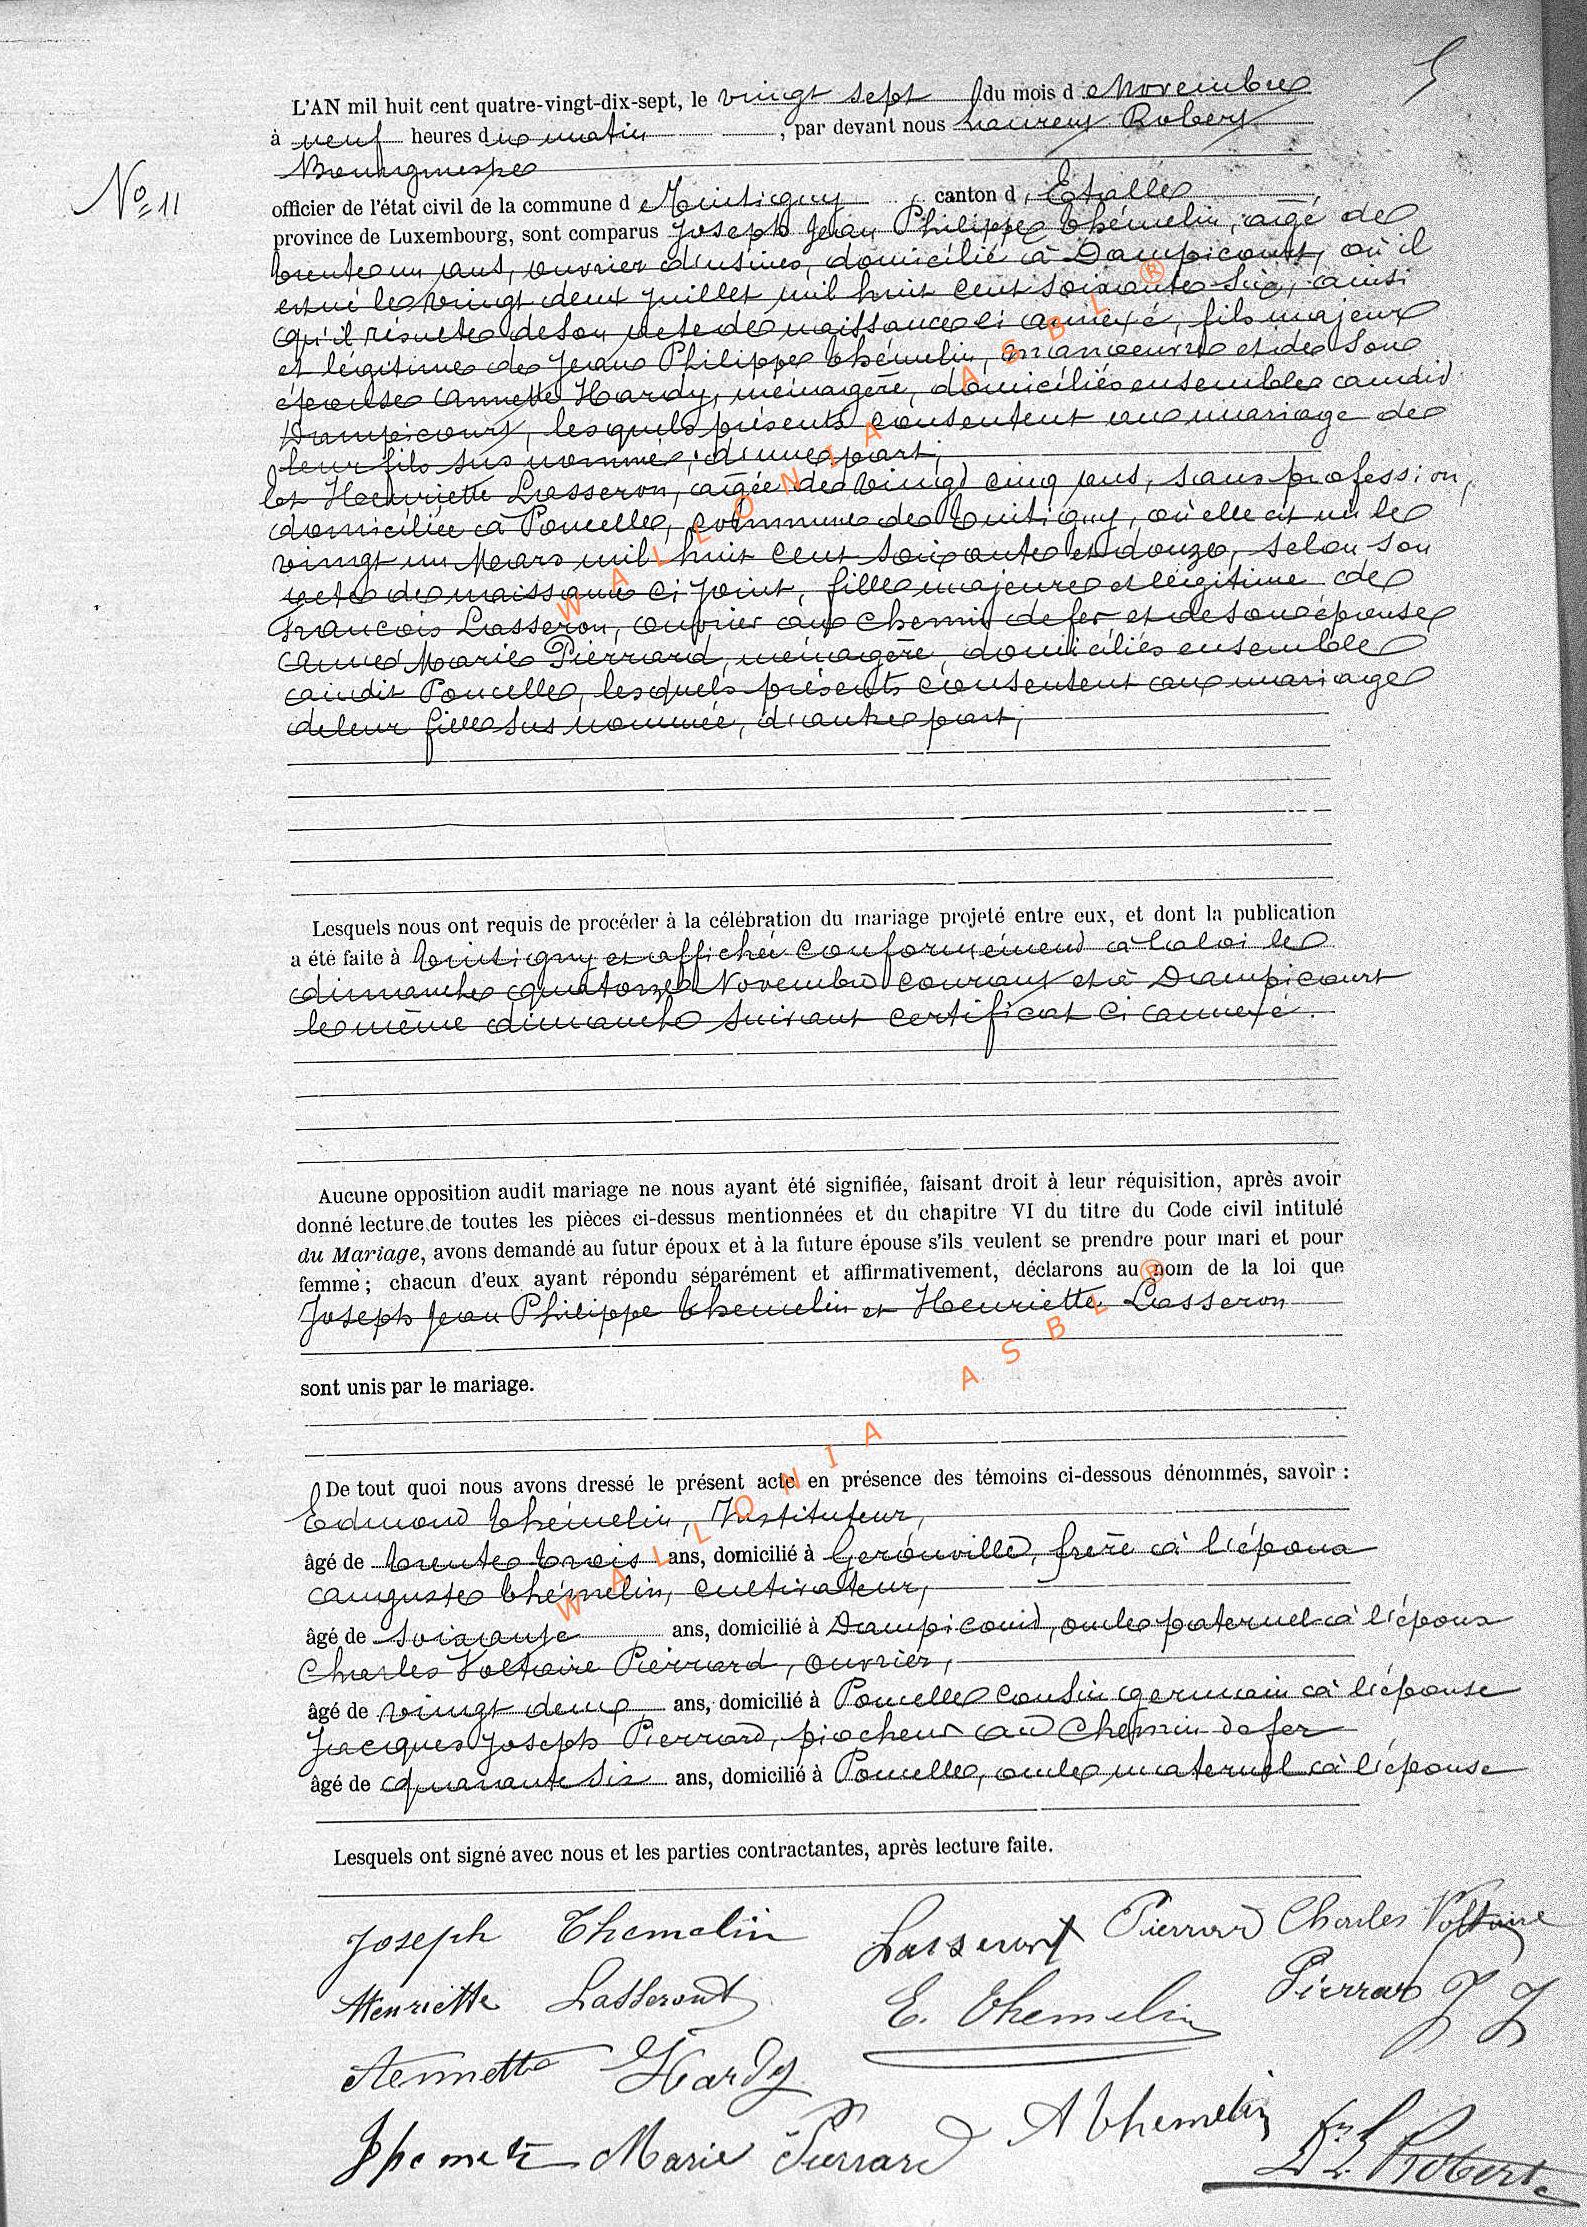 5
L'AN mil huit cent quatre-vingt-dix-sept, le vingt sept du mois d e Novembre
à neuf heures d u matin , par devant nous Laurent Robert
Bourgmestre
No 11
officier de l'état civil de la commune d e Tintigny , canton d Etalle
province de Luxembourg, sont comparus Joseph Jean Philippe Thémelin, agé de
trente un ans, ouvrier d'usines, domicilié à Dampicourt, où il
est né le vingt deux juillet mil huit cent soixante six, ainsi
qu'il résulte de son acte de naissance ci annexé, fils majeur
et légitime de Jean Philippe Thémelin, manoeuvre et de son
épouse Annette Hardy, ménagère, domiciliés ensemble audit
Dampicourt, lesquels présents consentent au mariage de
leur fils sus nommé, d'une part,
Et Henriette Lasseron, agée de vingt cinq ans, sans profession,
domiciliée à Poncelle, commune de Tintigny, où elle est née le
vingt un Mars mil huit cent soixante et douze, selon son
acte de naissance ci joint, fille majeure et légitime de
François Lasseron, ouvrier au chemin de fer et de son épouse
Anne Marie Pierrard, ménagère, domiciliés ensemble
audit Poncelle, lesquels présents consentent au mariage
de leur fille sus nommée, d'autre part,
Lesquels nous ont requis de procéder à la célébration du mariage projeté entre eux, et dont la publication
a été faite à Tintigny et affichée conformément à la loi le
dimanche quatorze Novembre courant et à Dampicourt
le même dimanche suivant certificat ci annexé.
Aucune opposition audit mariage ne nous ayant été signifiée, faisant droit à leur réquisition, après avoir
donné lecture de toutes les pièces ci-dessus mentionnées et du chapitre VI du titre du Code civil intitulé
du Mariage, avons demandé au futur époux et à la future épouse s'ils veulent se prendre pour mari et pour
femme ; chacun d'eux ayant répondu séparément et affirmativement, déclarons au nom de la loi que
Joseph Jean Philippe Themelin et Henriette Lasseron
sont unis par le mariage.
De tout quoi nous avons dressé le présent acte en présence des témoins ci-dessous dénommés, savoir :
Edmond Thémelin, Instituteur,
âgé de trente trois ans, domicilié à Gerouville, frère à l'époux
Auguste Thémelin, cultivateur,
âgé de soixante ans, domicilié à Dampicourt, oncle paternel à l'époux
Charles Voltaire Pierrard, ouvrier,
âgé de vingt deux ans, domicilié à Poncelle cousin germain à l'épouse
Jacques Joseph Pierrard, piocheur au Chemin de fer
âgé de quarante six ans, domicilié à Poncelle, oncle maternel à l'épouse
Lesquels ont signé avec nous et les parties contractantes, après lecture faite.
Joseph Themelin Lasseront Pierrard Charles Voltaire
Henriette Lasseront E. Themelin Pierrard J J
Annette Hardy
Marie Pierrard A Themelin L Robert
WALLONIA ASBL ®
WALLONIA ASBL ®